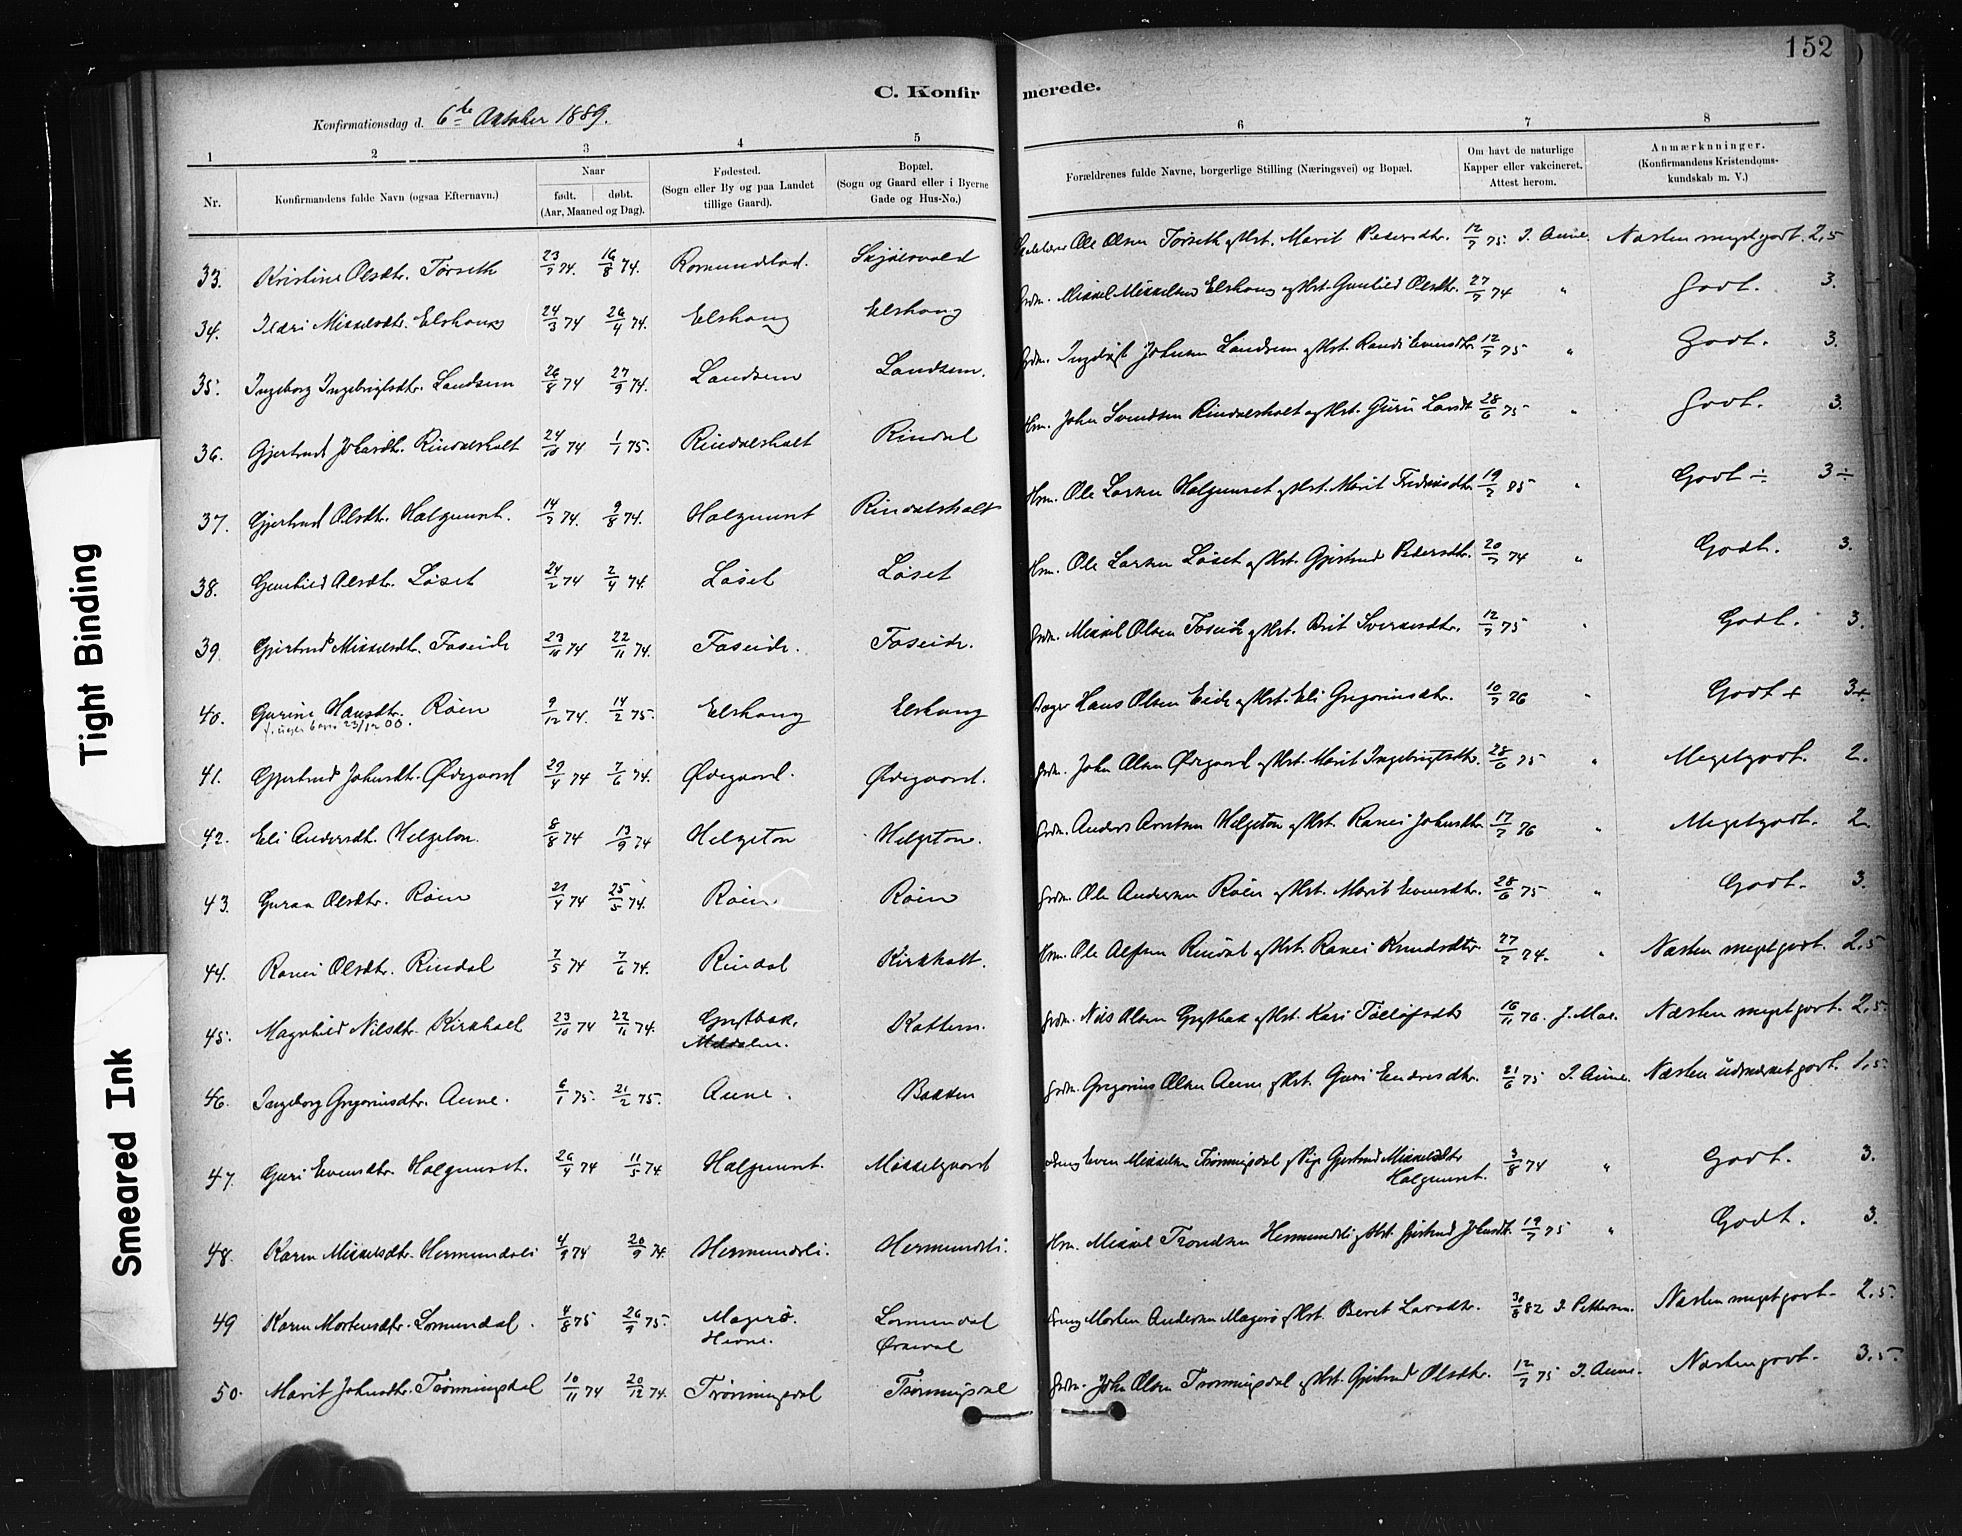 152
C. Konfir merede.
Konfirmationsdag d. 6te Oktober 1889.
1 2 3 4 5 6 7 8
Nr.
Konfirmandens fulde Navn (ogsaa Efternavn.)
Naar
født. døbt.
(Aar, Maaned og Dag).
Fødested.
(Sogn eller By og paa Landet
tillige Gaard).
Bopæl.
(Sogn og Gaard eller i Byerne
Gade og Hus-No.)
Forældrenes fulde Navne, borgerlige Stilling (Næringsvei) og Bopæl.
Om havt de naturlige
Kapper eller vakcineret.
Attest herom.
Anmærkninger.
(Konfirmandens Kristendoms-
kundskab m. V.)
33. Kristine Olsdtr. Tørseth 23/7 74. 16/8 74. Romundstad. Skjølsvold Ole Olsen Tørseth og Hst. Marit Pedersdtr. 12/7 75. I. Aune. Næsten meget godt. 2,5
34. Ildri Mikkelsdtr. Elshaug 24/3 74 26/4 74. Elshaug Elshaug Grdm. Mikkel Mikkelsen Elshaug og Hst. Gunhild Olsdtr. 27/7 74 " Godt. 3.
35. Ingeborg Ingebrigtsdtr. Landsem 26/8 74 27/9 74. Landsem Landsem. Grdm. Ingebrigt Johnsen Landsem og Hst. Randi Evensdtr. 12/7 75 " Godt. 3.
36. Gjertrud Johnsdtr. Rindalsholt 24/10 74 1/1 75. Rindalsholt Rindal Hm. John Svendsen Rindalsholt og Hst. Guru 28/6 75 " Godt. 3.
37. Gjertrud Olsdtr. Halgunset. 14/7 74. 9/8 74. Halgunset Rindalsholt Hm. Ole Larsen Halgunset og Hst. Marit Fredriksdtr. 19/7 85 " Godt ÷ 3÷
38. Gunhild Olsdtr. Løset 24/2 74 2/4 74. Løset Løset Hm. Ole Larsen Løset og Hst. Gjertrud Pedersdtr. 20/7 74 " Godt. 3.
39. Gjertrud Mikkelsdtr. Faseide 23/10 74 22/11 74. Faseide. Faseide. Grdm. Mikkel Olsen Faseide og Hst. Brit Sversdtr. 12/7 75 " Godt. 3.
40. Gurine Hansdtr. Røen 9/12 74 14/2 75. Elshaug Elshaug Hans Olsen Eide og Hst. Eli Gregoriusdtr. 10/7 76 " Godt + 3+
23/12 00.
41. Gjertrud Johnsdtr. Ødegaard 29/4 74 7/6 74. Ødegaard. Ødegaard. Grdm. John Olsen Ødegaard og Hst. Marit Ingebrigtsdtr. 28/6 75 " Meget godt. 2.
42. Eli Andersdtr. Helgeton. 8/8 74 13/9 74 Helgeton Helgeton. Grdm. Anders Arntsen Helgeton og Hst. Ranei Johnsdtr. 17/7 76 " Meget godt. 2
43. Guraa Olsdtr. Røen 21/4 74 25/5 74. Røen Røen Grdm. Ole Andersen Røen og Hst. Marit Evensdtr. 28/6 75 " Godt. 3.
44. Ranei Olsdtr. Rindal 7/5 74 7/6 74. Rindal Kirkholt. Hm. Ole Rindal og Hst. Ranei Knudsdtr 27/7 74. " Næsten meget godt. 2,5
45. Magnhild Nilsdtr. Kirkholt 23/10 74 22/11 74. Kattem. Grdm. Nils Olsen og Hst. Kari 16/11 76. J. Moe. Næsten meget godt. 2,5.
Meldalen.
46. Ingeborg Gregoriusdtr. Aune. 6/1 75. 21/2 75. Aune. Bakken Grdm. Gregorius Olsen Aune og Hst. Guri Endresdtr. 21/6 75 I. Aune. Næsten udmærket godt. 1,5.
47. Guri Evensdtr. Halgunset. 26/4 74 11/5 74 Halgunset. Møkkelgaard Ung. Even Mikkelsen Trønningsdal og Pige Gjertrud Mikkelsdtr 3/8 74 " Godt. 3.
Halgunset.
48. Karen Mikkelsdtr. Hermundsli 4/9 74 20/9 74. Hermundsli. Hermundsli. Hm. Mikkel Trondsen Hermundsli og Hst. Gjertrud Johnsdtr. 19/7 75 " Godt. 3.
49 Karen Mortensdtr. Lomundal. 4/8 75 26/9 75. Magerø. Lomundal Morten Andersen Magerø og Hst. Beret Larsdtr. 30/8 82 I. Pettersen. Næsten meget godt. 2,5.
Hevne. Ørsdal
50. Marit Johnsdtr. Trønningsdal 10/11 74 20/12 74. Trønningsdal Trønningsdal Grdm. John Olsen Trønningsdal og Hst. Gjertrud Olsdtr. 12/7 75 I. Aune. Næsten godt. 3,5.
Tight Binding
Smeared Ink